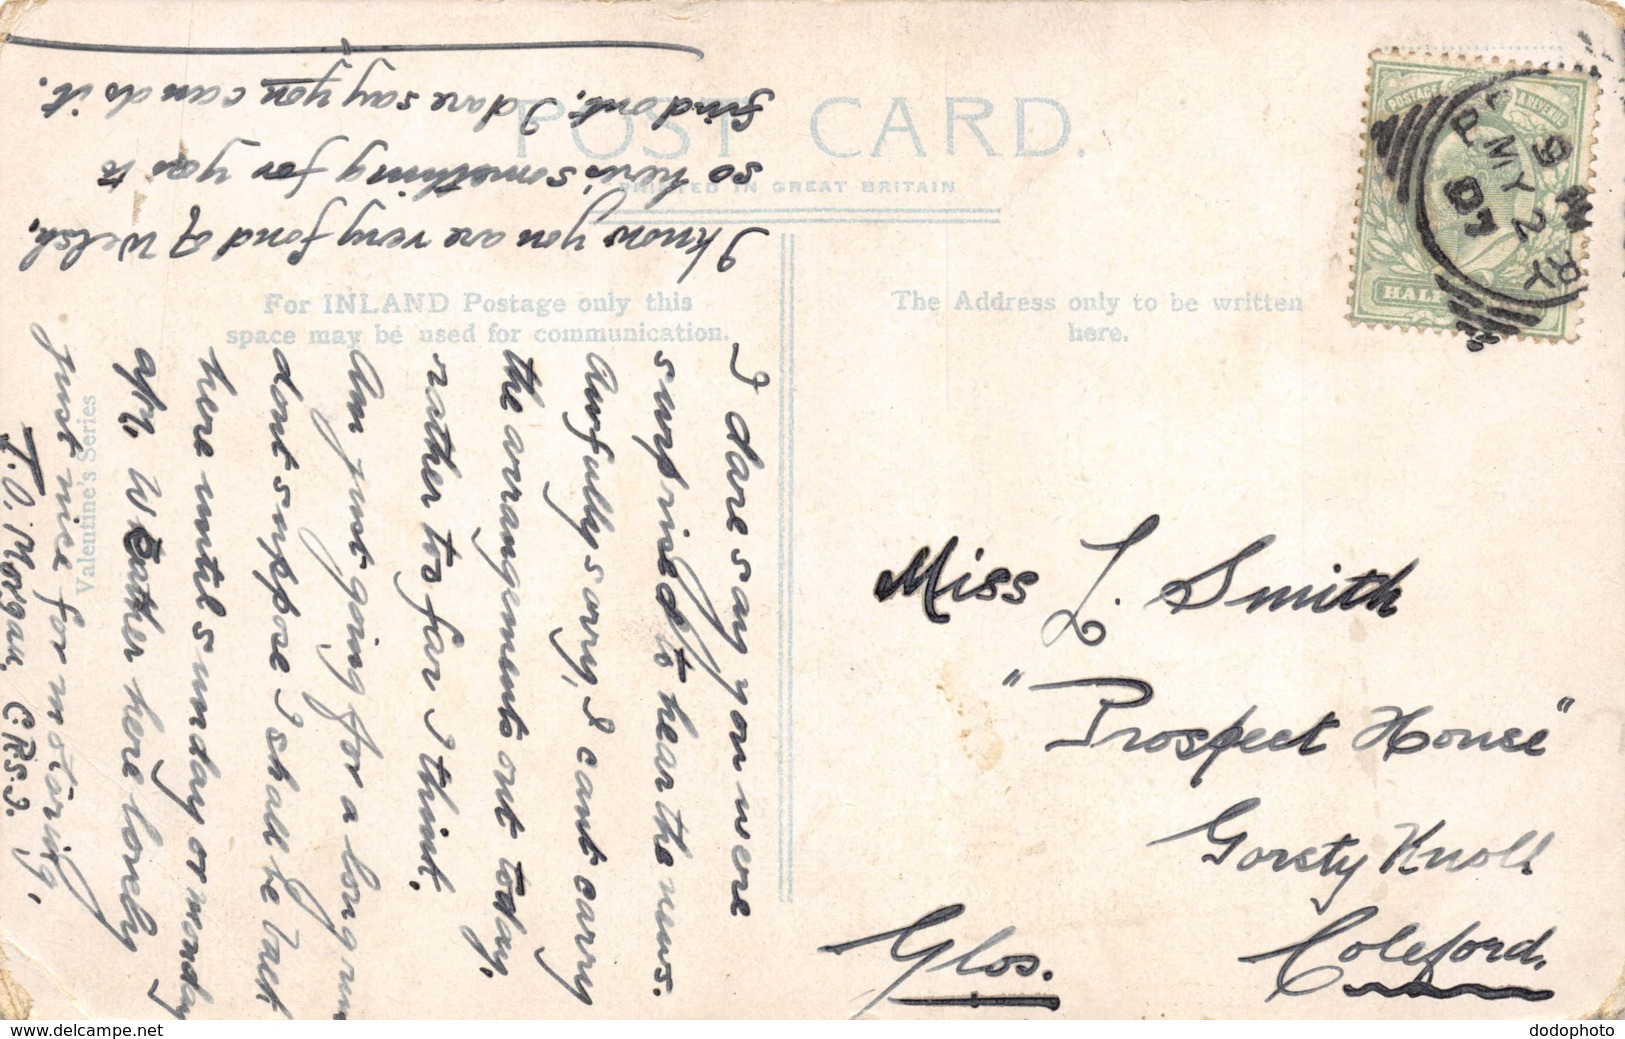 POST CARD.
PRINTED IN GREAT BRITAIN
For INLAND Postage only this
space may be used for communication.
The Address only to be written
here.
Valentine's Series
I know you are very fond of Welsh,
so here's something for you to
find out, I dare say you can do it.
I dare say you were
surprised to hear the news.
Awfully sorry, I cant carry
the arrangements out today,
rather to far I think.
Am just going for a long run
dont suppose I shall be back
here until sunday or monday
Weather here lovely
just nice for motoring,
T.O. Morgan, C.R.S.I.
Miss L. Smith
"Prospect House"
Gorsty Knoll
Coleford.
Glos.
POSTAGE & REVENUE
HALF
9 PM
MY 2
07
dodophoto